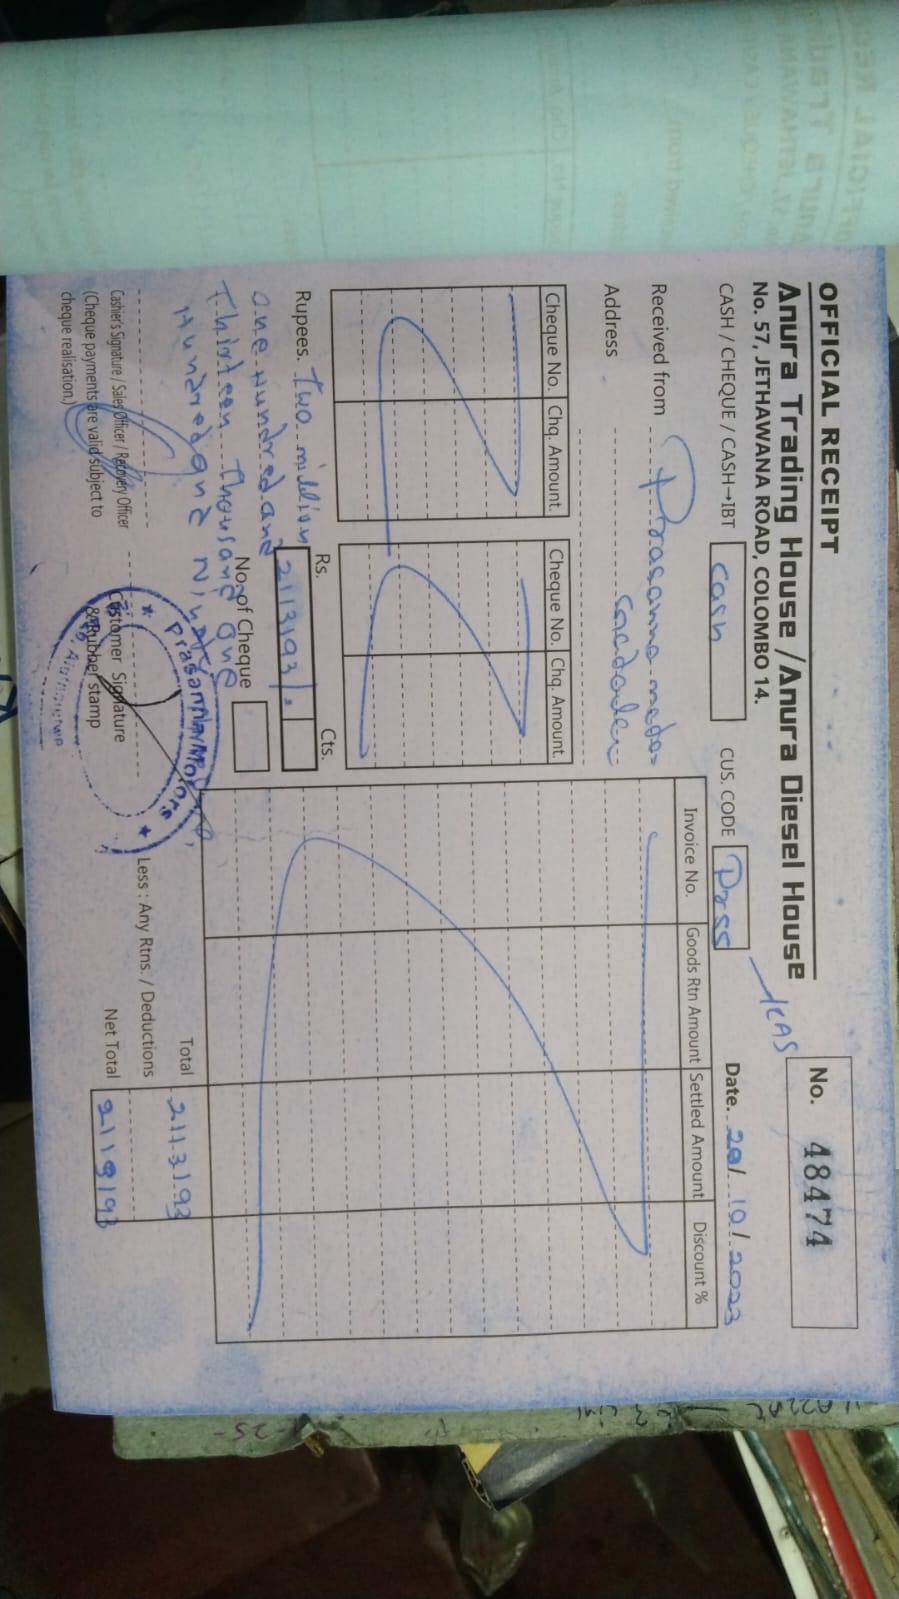 OFFICIAL RECEIPT
No. 48474
Anura Trading House / Anura Diesel House
No. 57, JETHAWANA ROAD, COLOMBO 14.
CASH / CHEQUE / CASH→IBT Cash CUS. CODE Date. 20/10/2023
Received from Prasanna
Address
Cheque No. Chq. Amount. Cheque No. Chq. Amount.
Invoice No. Goods Rtn Amount Settled Amount Discount %
Rs. Cts.
Rupees. Two million 2113193/.
one Hundred and
Thirteen Thousand one
Hundred and Ninety
No. of Cheque
Total 2113193
Less : Any Rtns. / Deductions
Net Total 2113193
Cashier's Signature / Sales Officer / Recovery Officer
(Cheque payments are valid subject to
cheque realisation.)
Customer Signature
& Rubber stamp